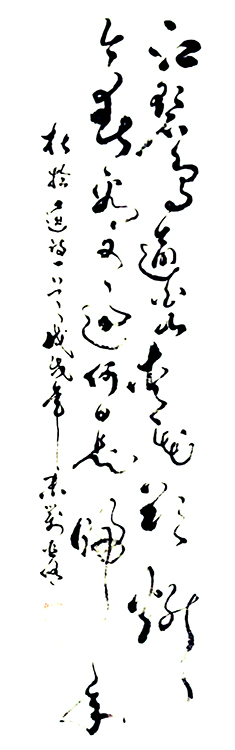 江碧鳥逾白山青花欲燃
今春看又過何日是歸年
杜拾遺詩一首戊戌年